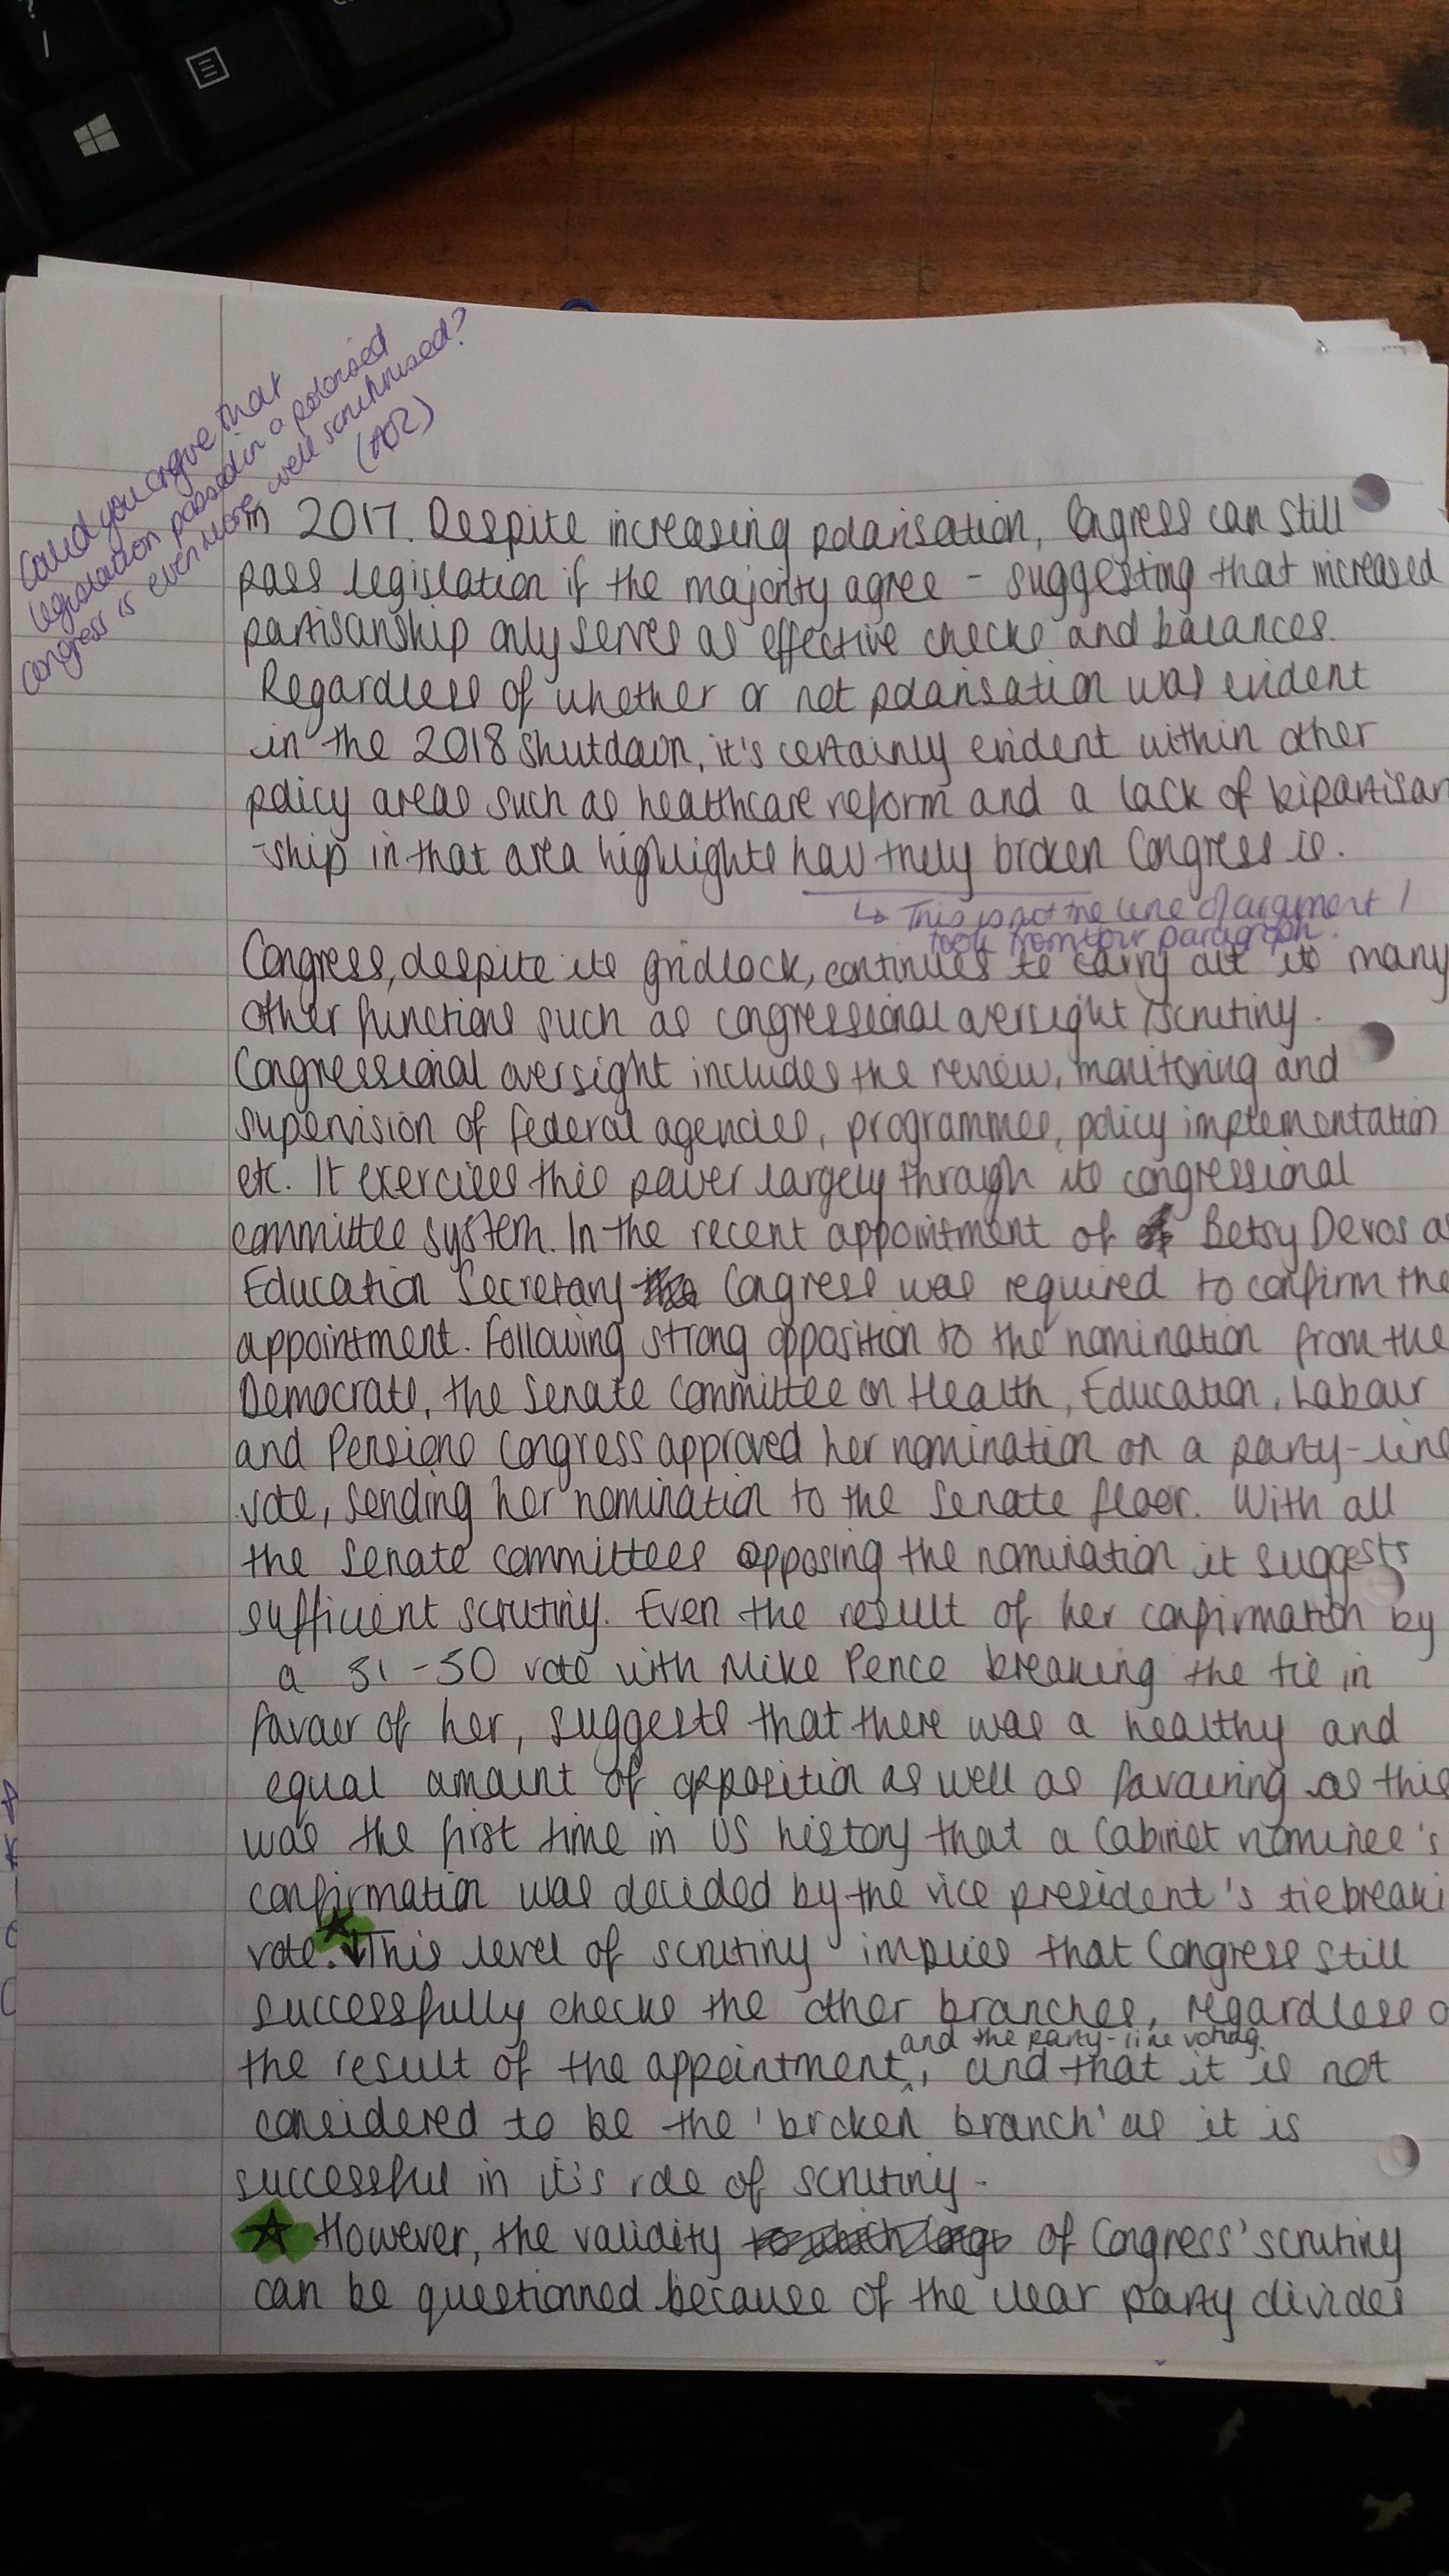 Could you argue that
legislation passed in a polarised
congress is even more well scrutinised?
(AO2)
in 2017. Despite increasing polarisation, Congress can still
pass legislation if the majority agree - suggesting that increased
partisanship only serves as effective checks and balances.
Regardless of whether or not polarisation was evident
in the 2018 shutdown, it's certainly evident within other
policy areas such as healthcare reform and a lack of bipartisan
-ship in that area highlights how truely broken Congress is.
↳ This is not the line of argument I
took from your paragraph.
Congress, despite its gridlock, continues to carry out its many
other functions such as congressional oversight /scrutiny.
Congressional oversight includes the review, monitoring and
supervision of federal agencies, programmes, policy implementation
etc. It exercises this power largely through its congressional
committee system. In the recent appointment of Betsy Devos a
Education Secretary Congress was required to confirm the
appointment. Following strong opposition to the nomination from the
Democrats, the Senate Committee on Health, Education, Labour
and Pensions Congress approved her nomination on a party-line
vote, sending her nomination to the Senate floor. With all
the Senate committees opposing the nomination it suggests
sufficient scrutiny. Even the result of her confirmation by
a 51-50 vote with Mike Pence breaking the tie in
favour of her, suggests that there was a healthy and
equal amount of opposition as well as favouring as this
was the first time in US history that a Cabinet nominee's
confirmation was decided by the vice president's tiebreaki
vote. This level of scrutiny implies that Congress still
successfully checks the other branches, regardless o
and the party-line voting.
the result of the appointment, and that it is not
considered to be the 'broken branch' as it is
successful in it's role of scrutiny.
However, the validity of Congress' scrutiny
can be questionned because of the clear party divides